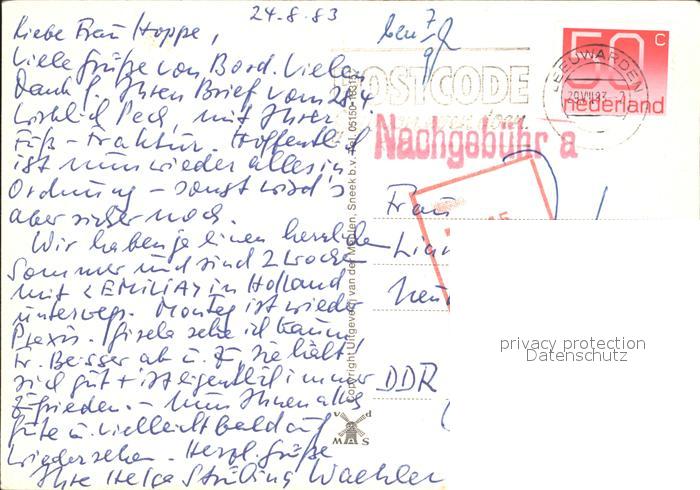 24.8.83
Liebe Frau Hoppe,
Viele Grüße von Bord. Vielen
Dank f. Ihren Brief vom 28.4.
Wirklich Pech, mit Ihrer
Fuß-Fraktur. Hoffentlich
ist nun wieder alles in
Ordnung - sonst wird's
aber sicher noch.
Wir haben ja einen herrlichen
Sommer und sind 2 Wochen
mit <EMILIA> in Holland
unterwegs. Montag ist wieder
Praxis. Gisela sehe ich kaum
Fr. Beisser ab u. z, sie hält
sich gut + ist eigentlich immer
zufrieden. - Nun Ihnen alles
Gute u. vielleicht bald auf
Wiedersehen. Herzl. Grüße
Ihre Helga Waehler
7
9
50 c
nederland
LEEUWARDEN
POSTCODE
Nachgebühr a
Frau
DDR
Copyright Uitgeverij van der Meulen, Sneek b.v. Tel. 05150-
v d
MAS
privacy protection
Datenschutz